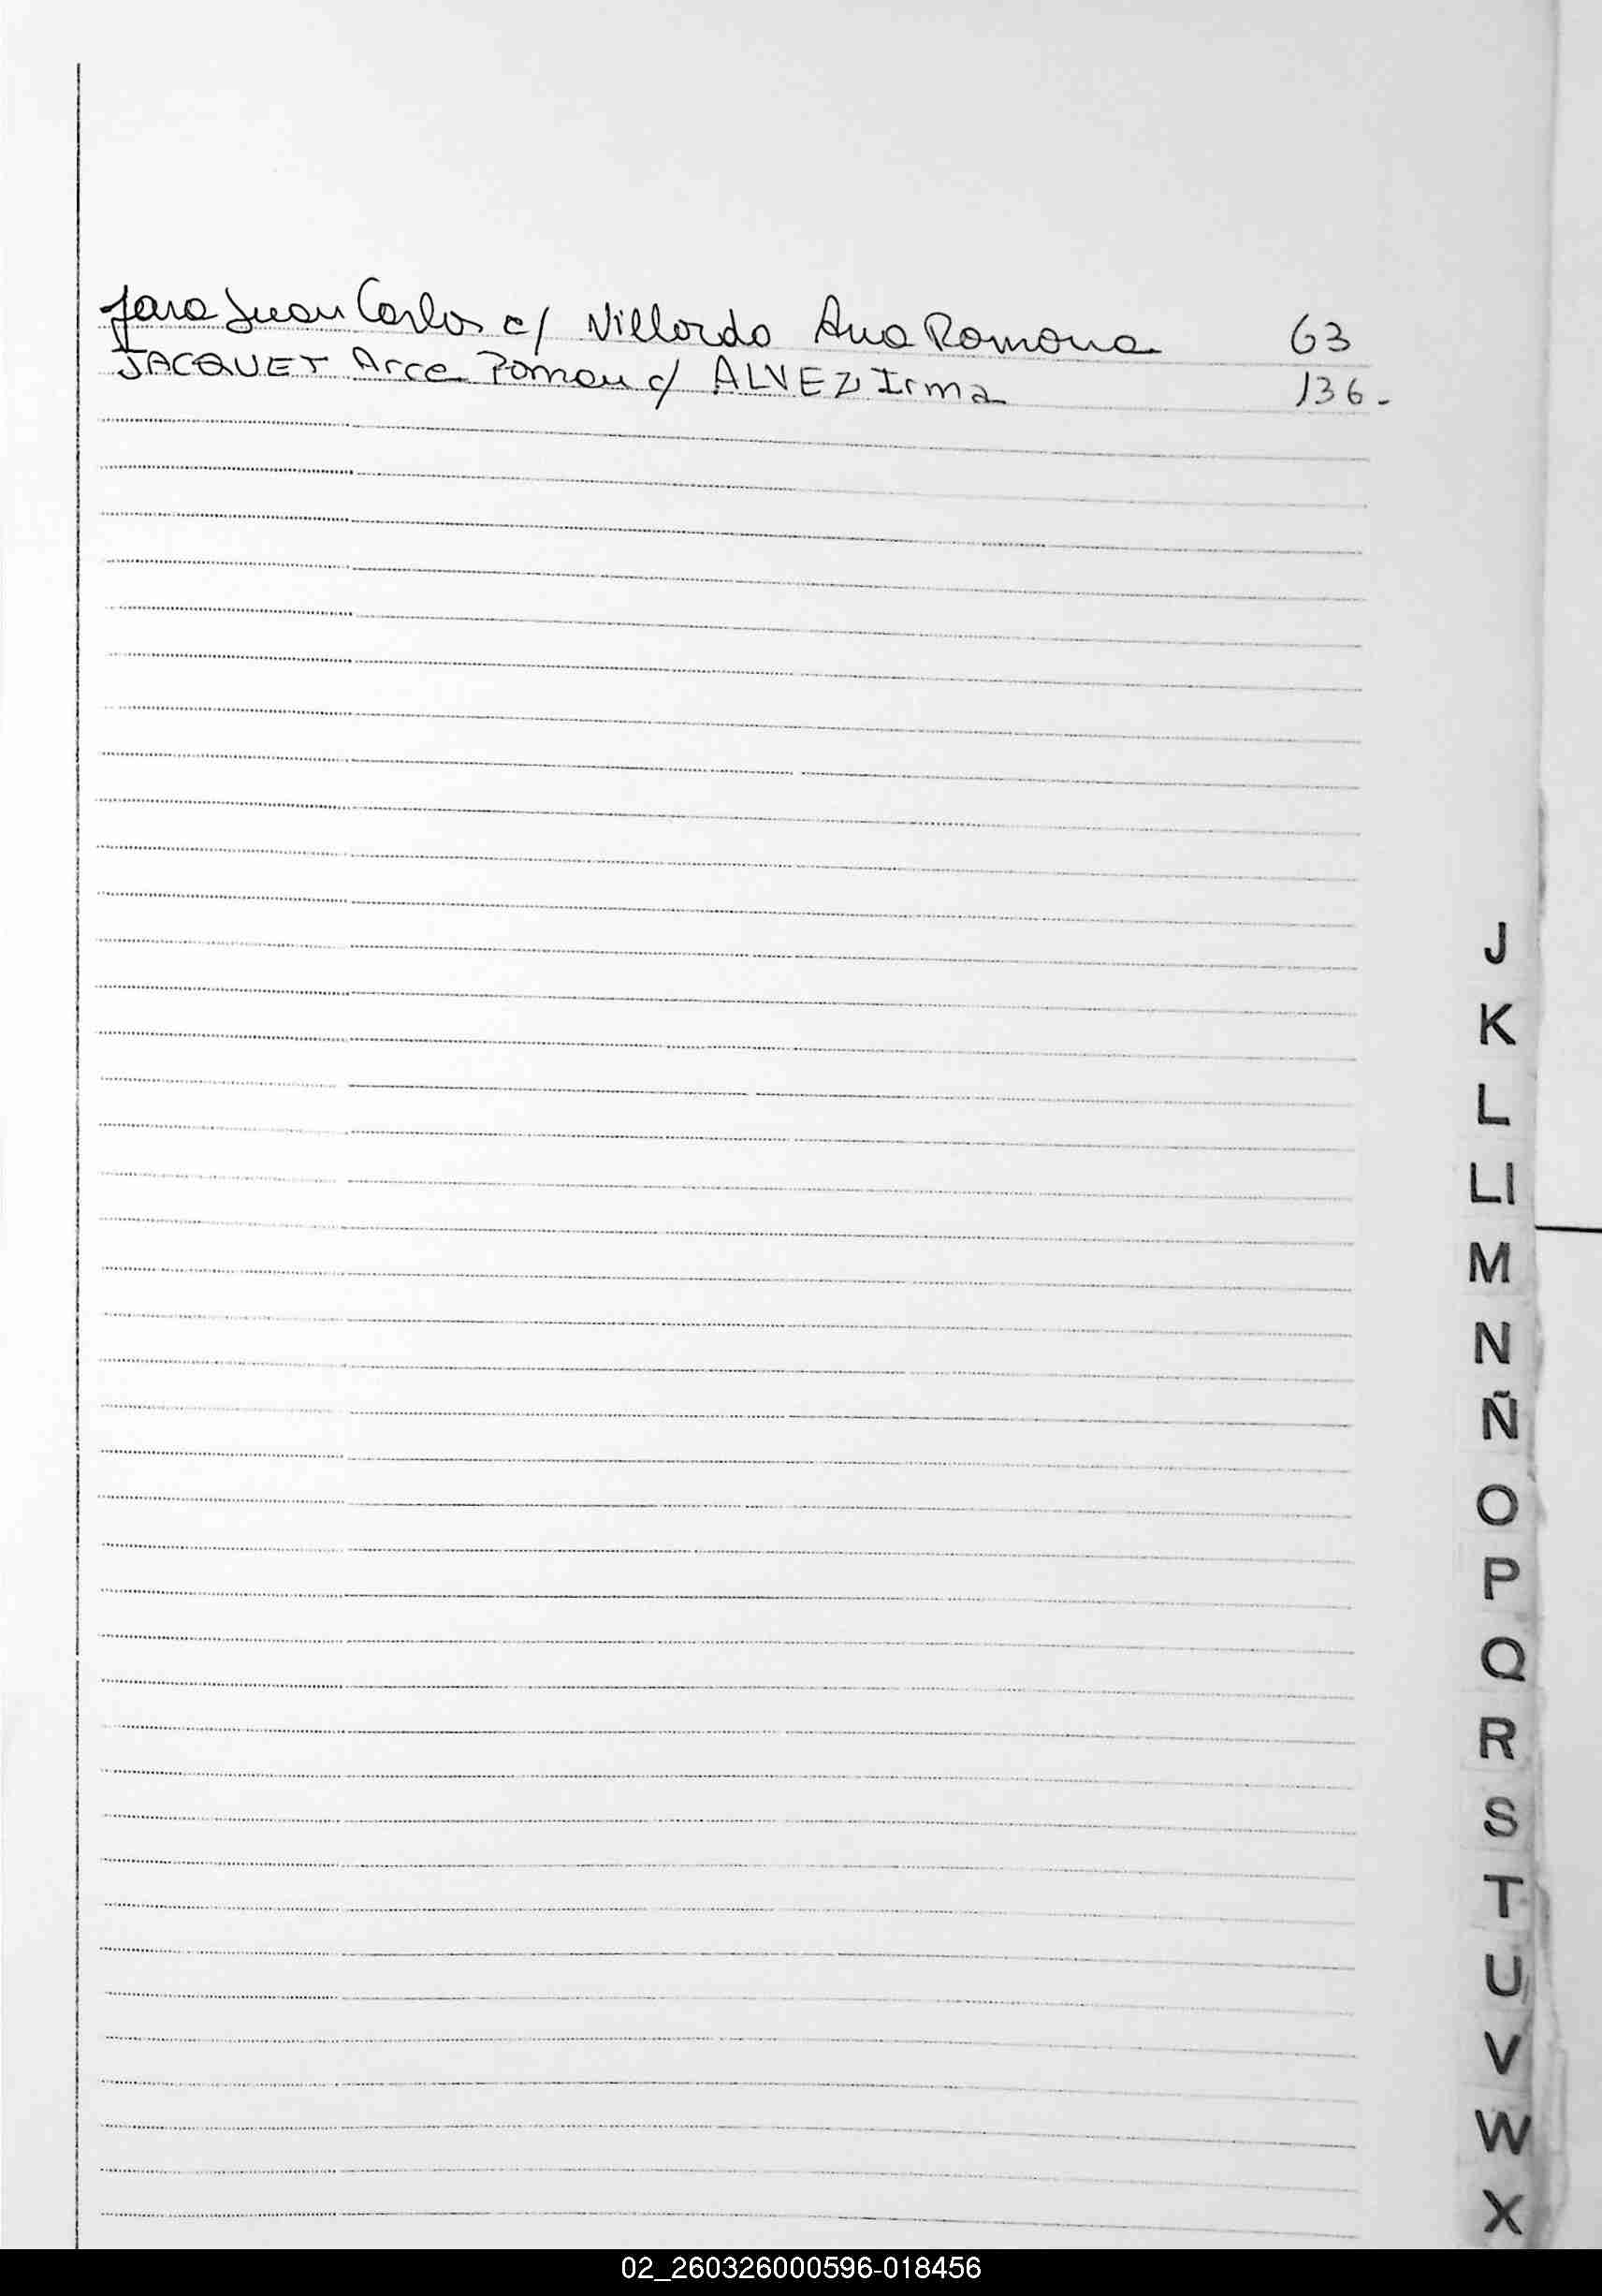 Jara Juan Carlos c/ Villordo Ana Ramona 63
JACQUET Arce Ramon c/ ALVEZ Irma 136-
J
K
L
Ll
M
N
Ñ
O
P
Q
R
S
T
U
V
W
X
02_260326000596-018456